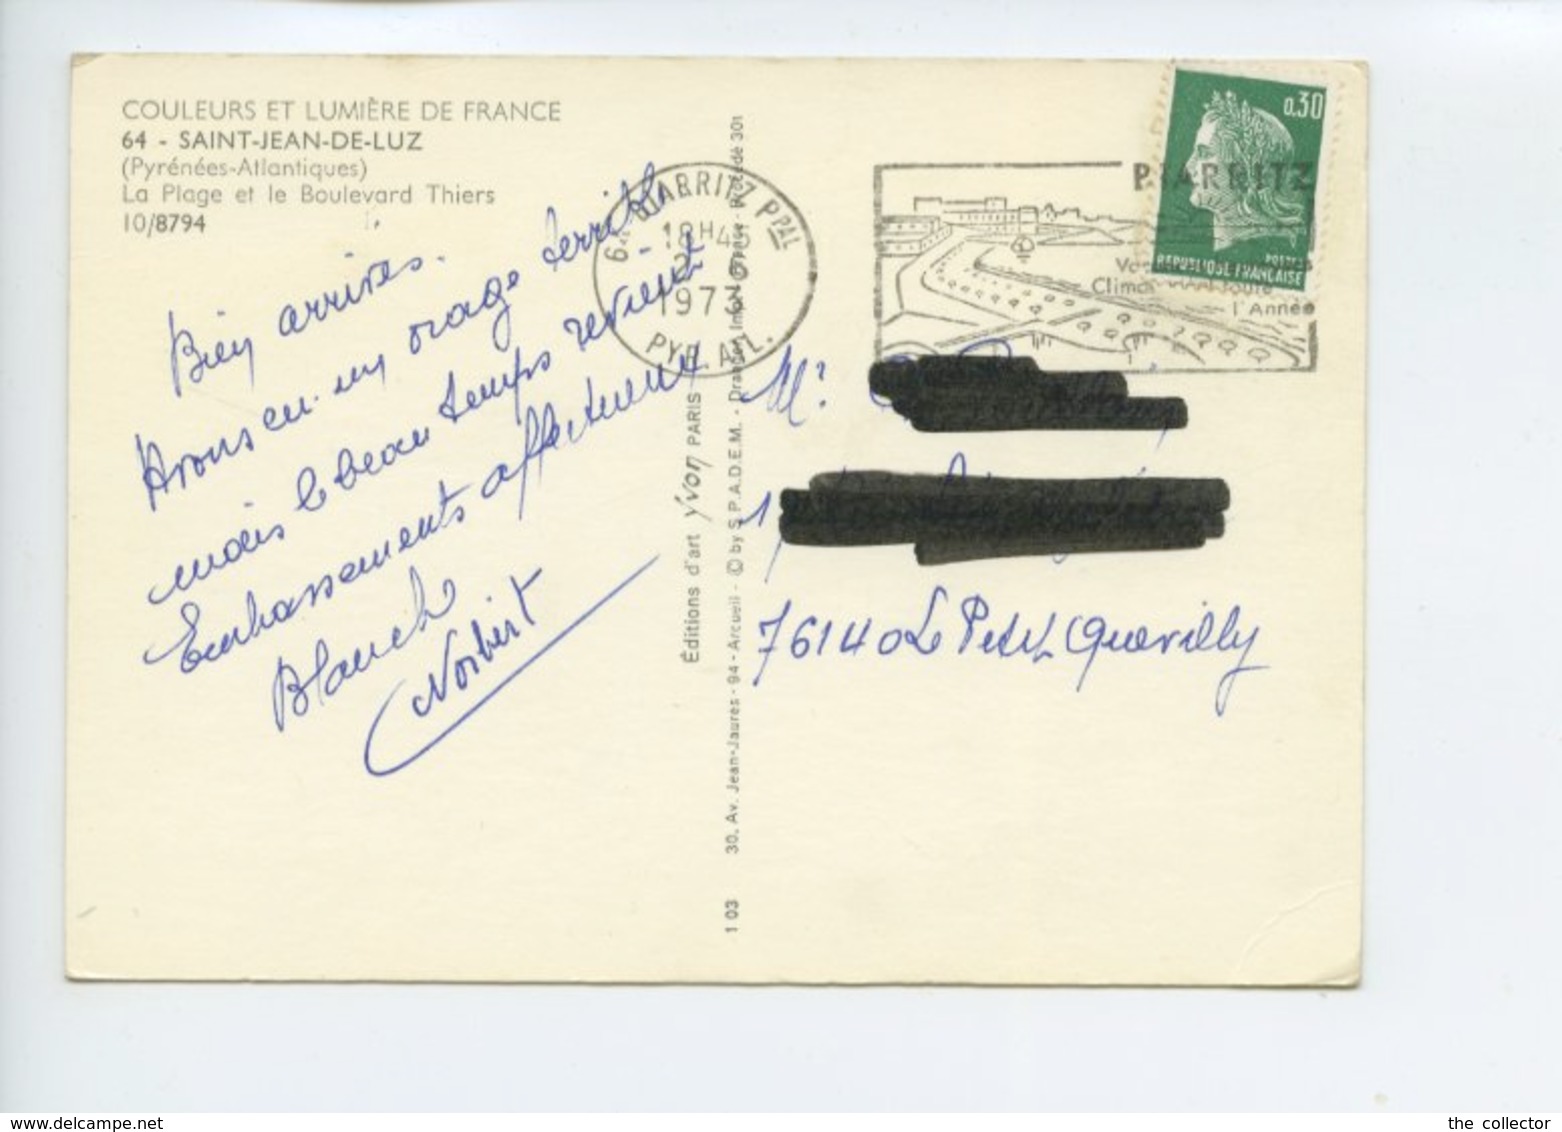 COULEURS ET LUMIÈRE DE FRANCE
64 - SAINT-JEAN-DE-LUZ
(Pyrénées-Atlantiques)
La Plage et le Boulevard Thiers
10/8794
Bien arrivés.
Avons eu un orage terrible
mais le beau temps revient
Embrassements affectueux
Blanche
Norbert
Éditions d'art Yvon PARIS
30, Av. Jean-Jaurès - 94 - Arcueil - © by S.P.A.D.E.M. - Draeger Imp. - Procédé 301
1 03
64 BIARRITZ PPAL
18H45
1973
PYR. ATL.
BIARRITZ
l'Année
0,30
REPUBLIQUE FRANÇAISE
POSTES
Mr
76140 Le Petit Quevilly
the collector